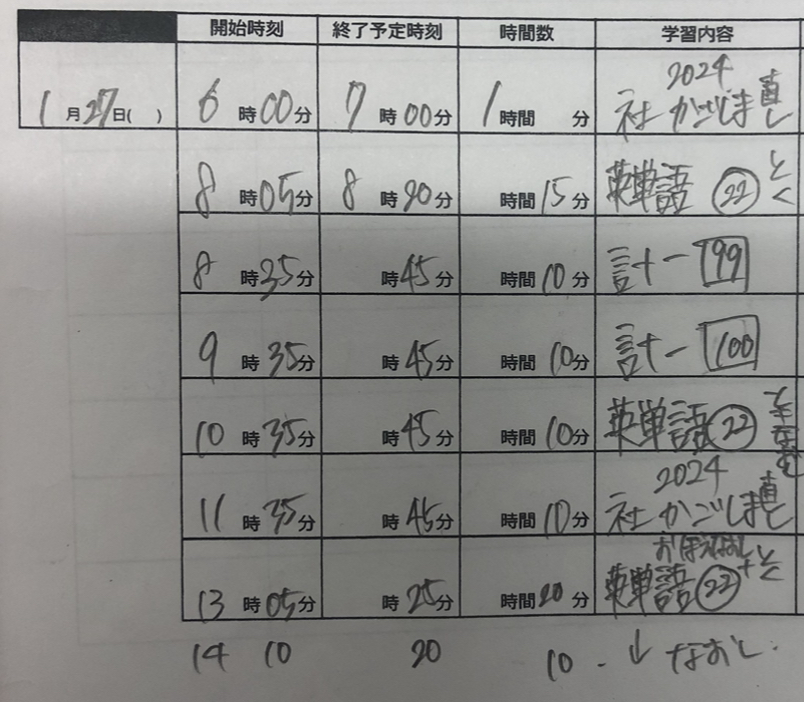 開始時刻 終了予定時刻 時間数 学習内容
1月27日( ) 6時00分 7時00分 1時間 分 2024 社 かごしま 直し
8時05分 8時20分 時間15分 英単語 ㉒ とく
8時35分 時45分 時間10分 計十一 99
9時35分 時45分 時間10分 計十一 100
10時35分 時45分 時間10分 英単語 ㉒
11時35分 時45分 時間10分 2024 社 かごしま 直し
13時05分 時25分 時間20分 英単語 ㉒ おぼえなおし+とく
14 10 20 10 - ↓ なおし.